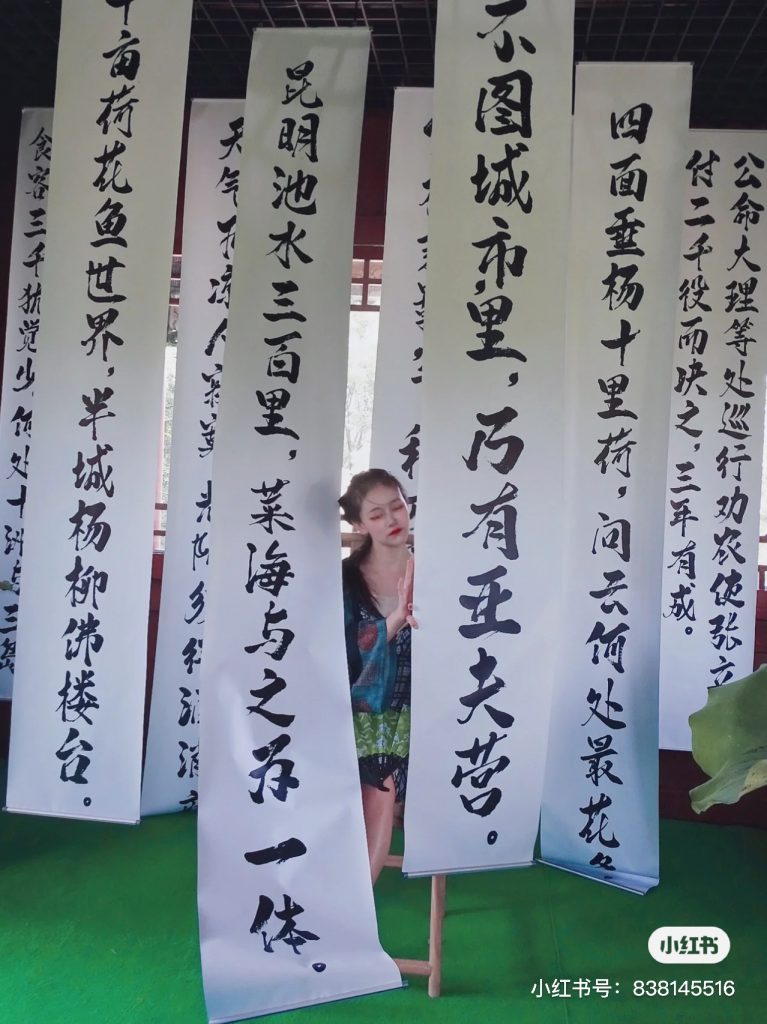 公命大理等处巡行劝农使张立
付二千役而决之，三年有成。
四面垂杨十里荷，问云何处最花
不图城市里，乃有亚夫营。
昆明池水三百里，菜海与之为一体。
天气
十亩荷花鱼世界，半城杨柳佛楼台。
食客三千犹觉少 何处十
小红书
小红书号：838145516